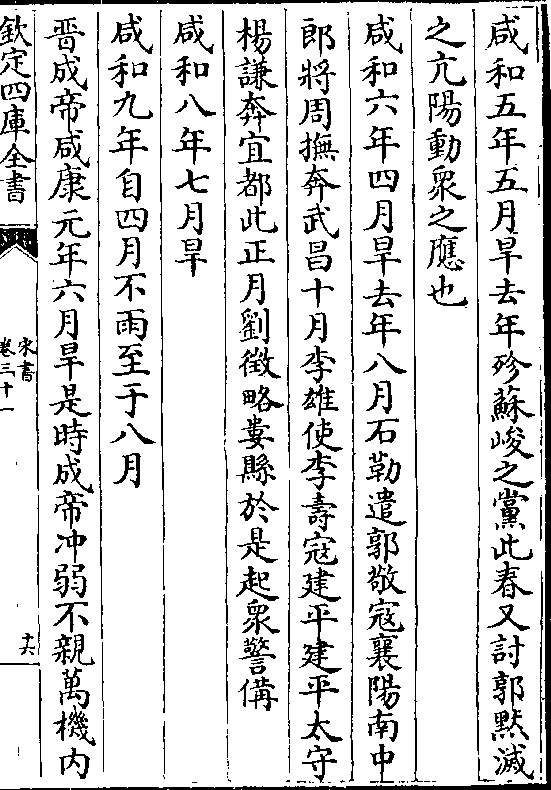 咸和五年五月旱去年殄蘇峻之黨此春又討郭黙滅
之亢陽動衆之應也
咸和六年四月旱去年八月石勒遣郭敬寇襄陽南中
郎將周撫奔武昌十月李雄使李壽寇建平建平太守
楊謙奔宜都此正月劉徵略婁縣於是起衆警備
咸和八年七月旱
咸和九年自四月不雨至于八月
晋成帝咸康元年六月旱是時成帝冲弱不親萬機内
欽定四庫全書
宋書
卷三十一
十六